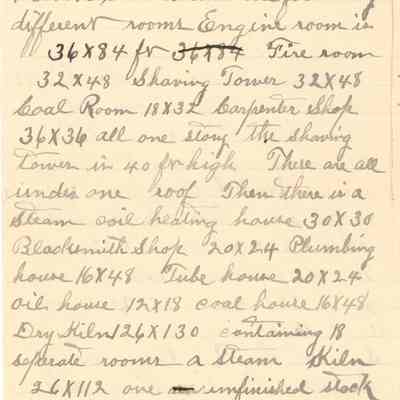 different rooms Engine room is
36X84 ft 36X84 Fire room
32X48 Shaving Tower 32X48
Coal Room 18X32 Carpenter Shop
36X36 all one story the shaving
Tower is 40 ft high There are all
under one roof Then there is a
Steam coil heating house 30X30
Blacksmith Shop 20X24 Plumbing
house 16X48 Tube house 20X24
oil house 12X18 coal house 16X48
Dry Kiln 126X130 containing 18
seperate rooms a Steam Kiln
26X112 one unfinished stock